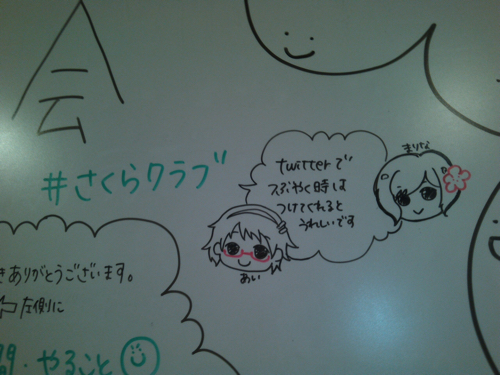 会
#さくらクラブ
まりな
twitterで
つぶやく時は
つけてくれると
うれしいです
あい
きありがとうございます。
左側に
・やること